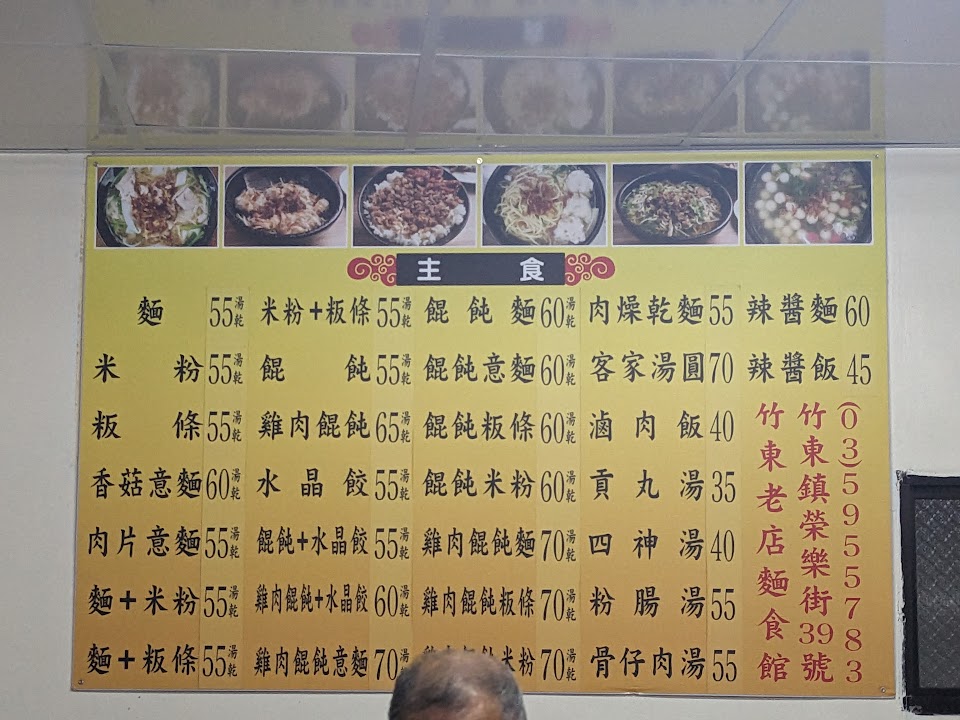 主食
麵 55 湯乾
米粉 55 湯乾
粄條 55 湯乾
香菇意麵 60 湯乾
肉片意麵 55 湯乾
麵+米粉 55 湯乾
麵+粄條 55 湯乾
米粉+粄條 55 湯乾
餛飩 55 湯乾
雞肉餛飩 65 湯乾
水晶餃 55 湯乾
餛飩+水晶餃 55 湯乾
雞肉餛飩+水晶餃 60 湯乾
雞肉餛飩意麵 70 湯乾
餛飩麵 60 湯乾
餛飩意麵 60 湯乾
餛飩粄條 60 湯乾
餛飩米粉 60 湯乾
雞肉餛飩麵 70 湯乾
雞肉餛飩粄條 70 湯乾
米粉 70 湯乾
肉燥乾麵 55
客家湯圓 70
滷肉飯 40
貢丸湯 35
四神湯 40
粉腸湯 55
骨仔肉湯 55
辣醬麵 60
辣醬飯 45
(03)5955783
竹東鎮榮樂街39號
竹東老店麵食館